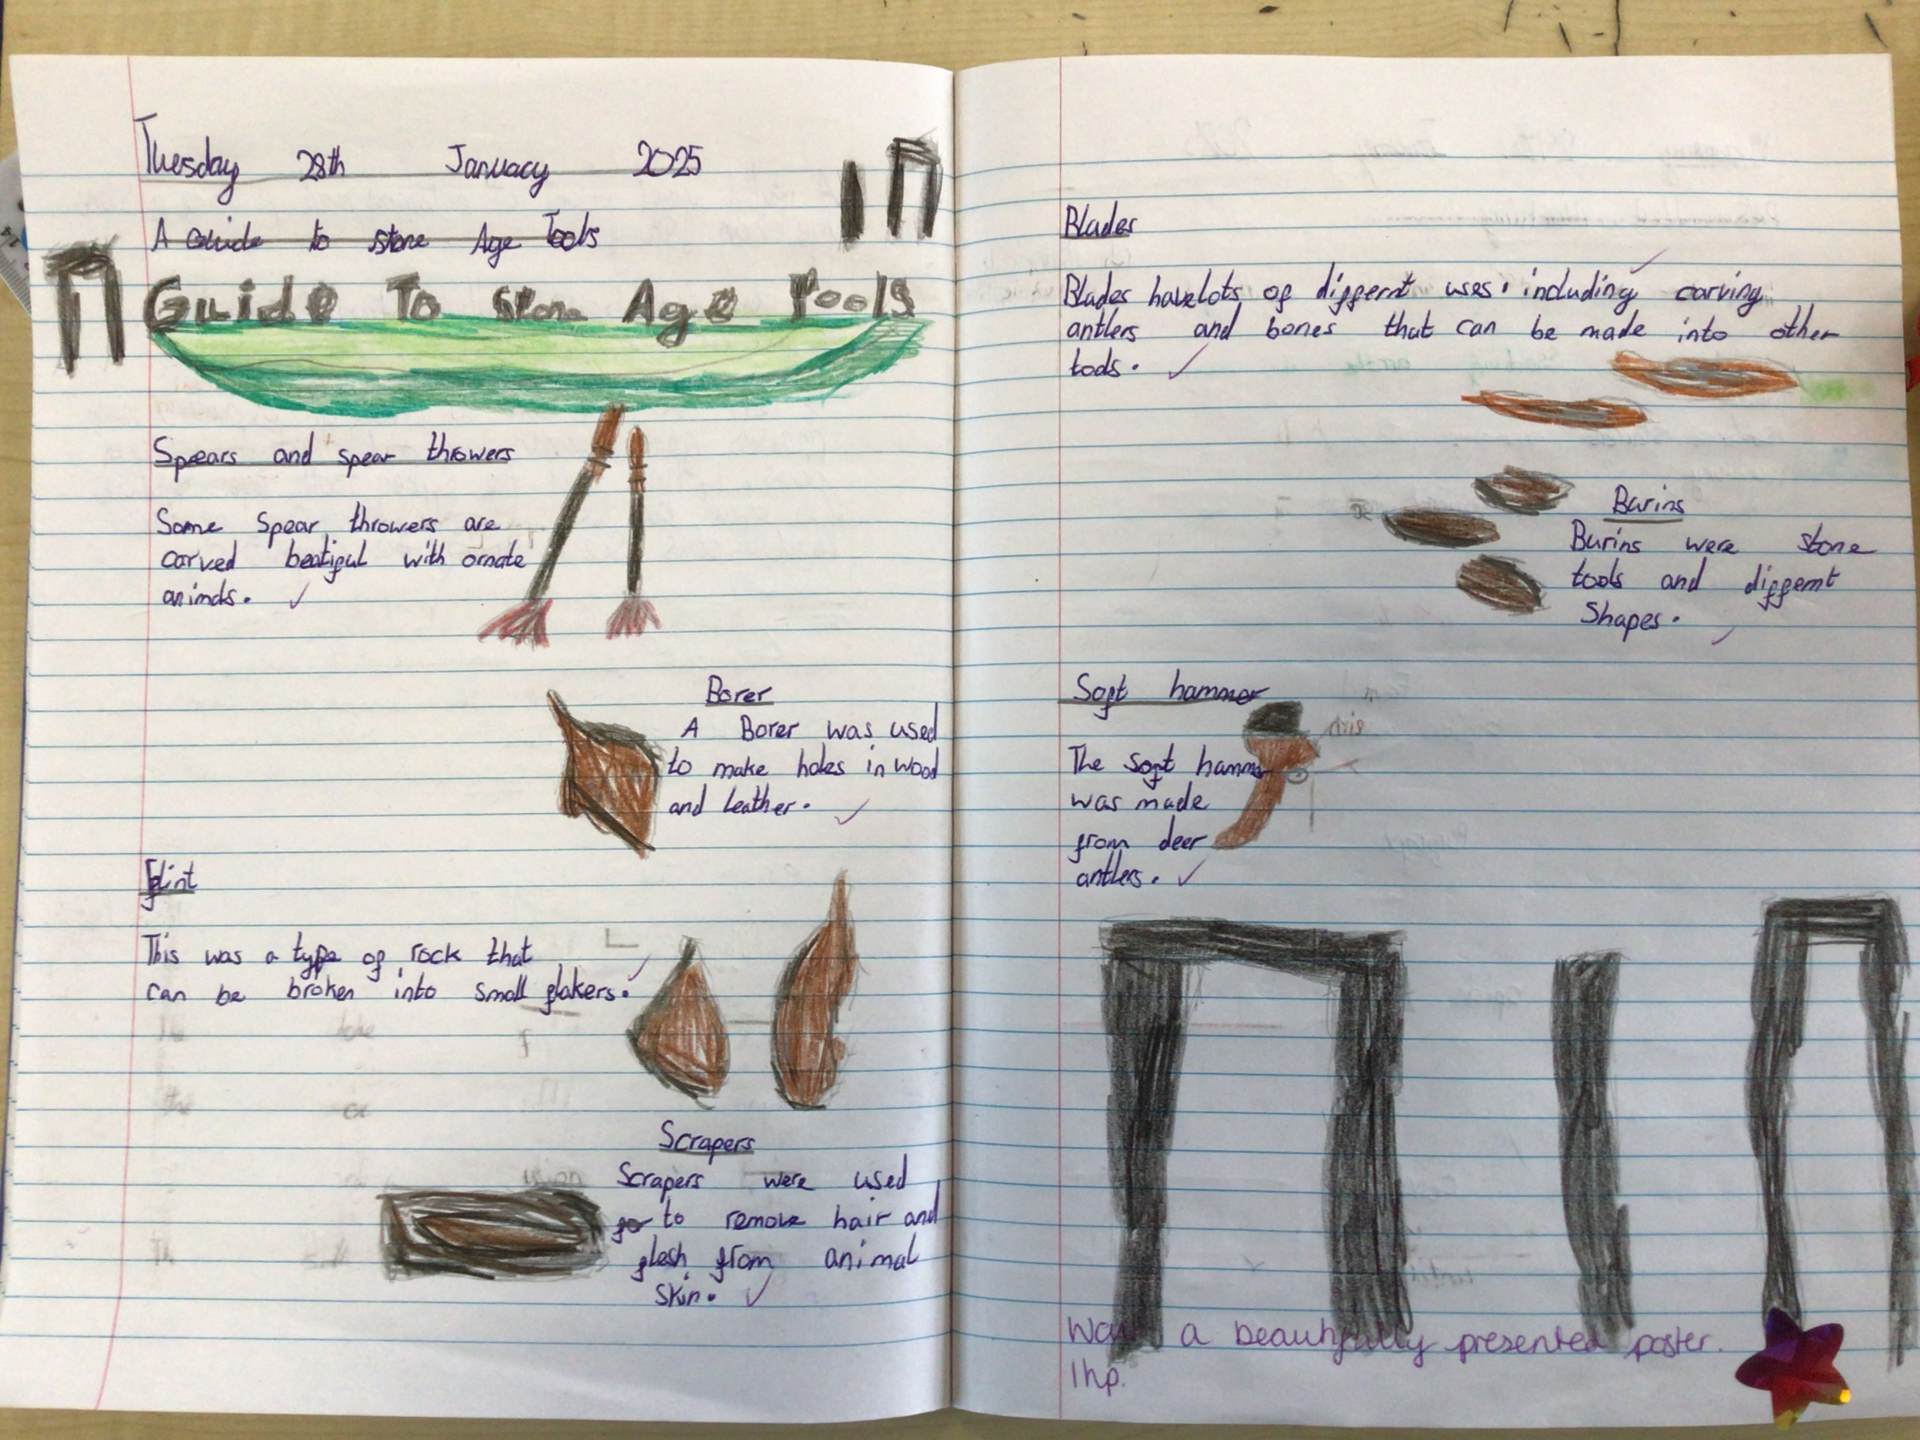 Tuesday 28th January 2025
A Guide to stone Age Tools
Guide To Stone Age Tools
Spears and spear throwers
Some Spear throwers are
carved beatiful with ornate
animals.
Borer
A Borer was used
to make holes in wood
and leather.
Flint
This was a type of rock that
can be broken into small flakers.
Scrapers
Scrapers were used
to remove hair and
flesh from animal
skin.
Blades
Blades have lots of differnt uses. including carving
antlers and bones that can be made into other
tools.
Burins
Burins were stone
tools and differnt
Shapes.
Soft hammer
The soft hammer
was made
from deer
antlers.
Wow a beautifully presented poster.
1hp.